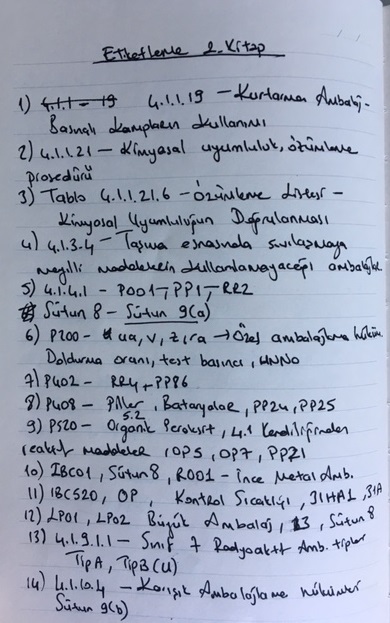 Etiketleme 2. Kitap
1) 4.1.1 - 19 4.1.1.19 - Kurtarma Ambalaj-
Basınçlı Kapların Kullanımı
2) 4.1.1.21 - Kimyasal uyumluluk, özümleme
prosedürü
3) Tablo 4.1.1.21.6 - Özümleme Listesi -
Kimyasal Uyumluluğun Doğrulanması
4) 4.1.3.4 - Taşıma esnasında sıvılaşmaya
meyilli maddelerin kullanılamayacağı ambalajlar
5) 4.1.4.1 - P001, PP1, RR2
Sütun 8 - Sütun 9(a)
6) P200 - ua, v, z, ra → Özel ambalajlama hüküm
Doldurma oranı, test basıncı, UNNO
7) P402 - RR4, PP86
8) P408 - Piller, Bataryalar, PP24, PP25
9) P520 - 5.2 Organik Peroksit, 4.1 Kendiliğinden
reaktif maddeler, OP5, OP7, PP21
10) IBC01, Sütun 8, R001 - İnce Metal Amb.
11) IBC520, OP, Kontrol Sıcaklığı, 31HA1, 31A
12) LP01, LP02 Büyük Ambalaj, L3, Sütun 8
13) 4.1.9.1.1 - Sınıf 7 Radyoaktif Amb. tipler
Tip A, Tip B(U)
14) 4.1.10.4 - Karışık Ambalajlama hükümleri
Sütun 9(b)